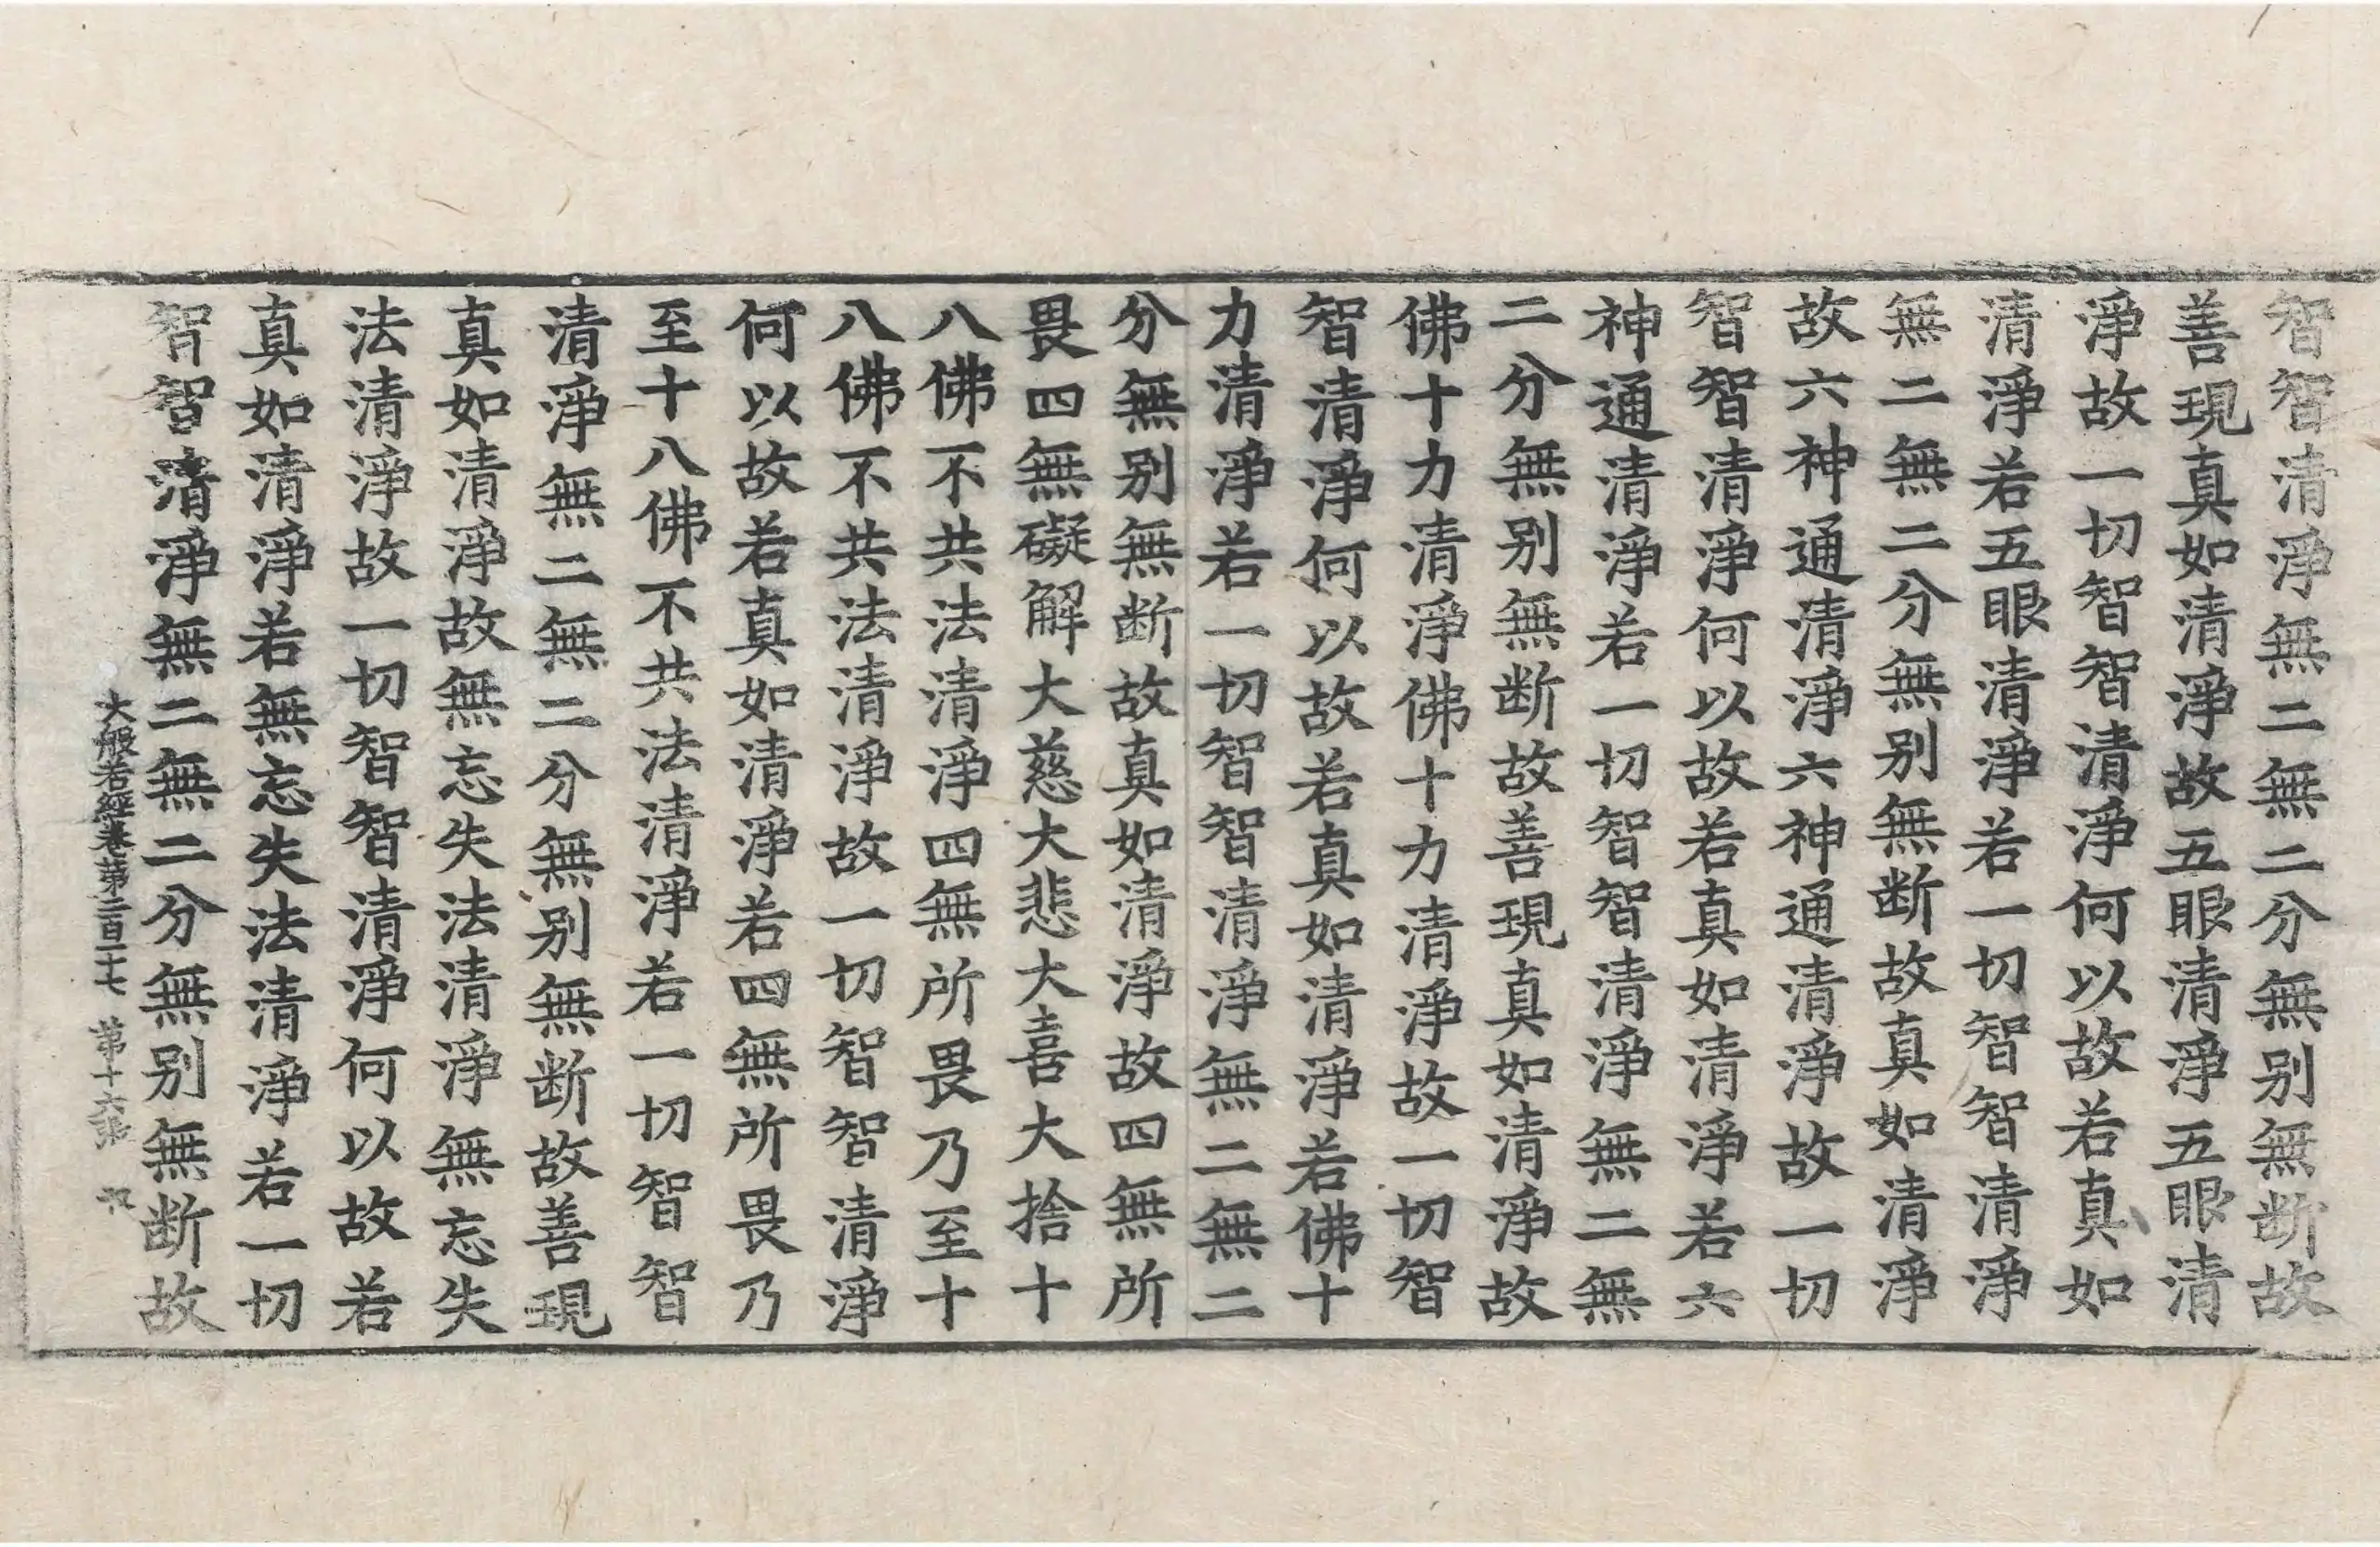 智智清淨無二無二分無别無断故
善現真如清淨故五眼清淨五眼清
淨故一切智智清淨何以故若真如
清淨若五眼清淨若一切智智清淨
無二無二分無别無断故真如清淨
故六神通清淨六神通清淨故一切
智智清淨何以故若真如清淨若六
神通清淨若一切智智清淨無二無
二分無别無断故善現真如清淨故
佛十力清淨佛十力清淨故一切智
智清淨何以故若真如清淨若佛十
力清淨若一切智智清淨無二無二
分無别無断故真如清淨故四無所
畏四無礙解大慈大悲大喜大捨十
八佛不共法清淨四無所畏乃至十
八佛不共法清淨故一切智智清淨
何以故若真如清淨若四無所畏乃
至十八佛不共法清淨若一切智智
清淨無二無二分無别無断故善現
真如清淨故無忘失法清淨無忘失
法清淨故一切智智清淨何以故若
真如清淨若無忘失法清淨若一切
智智清淨無二無二分無别無断故
大般若經卷第二百二十七 第十六張